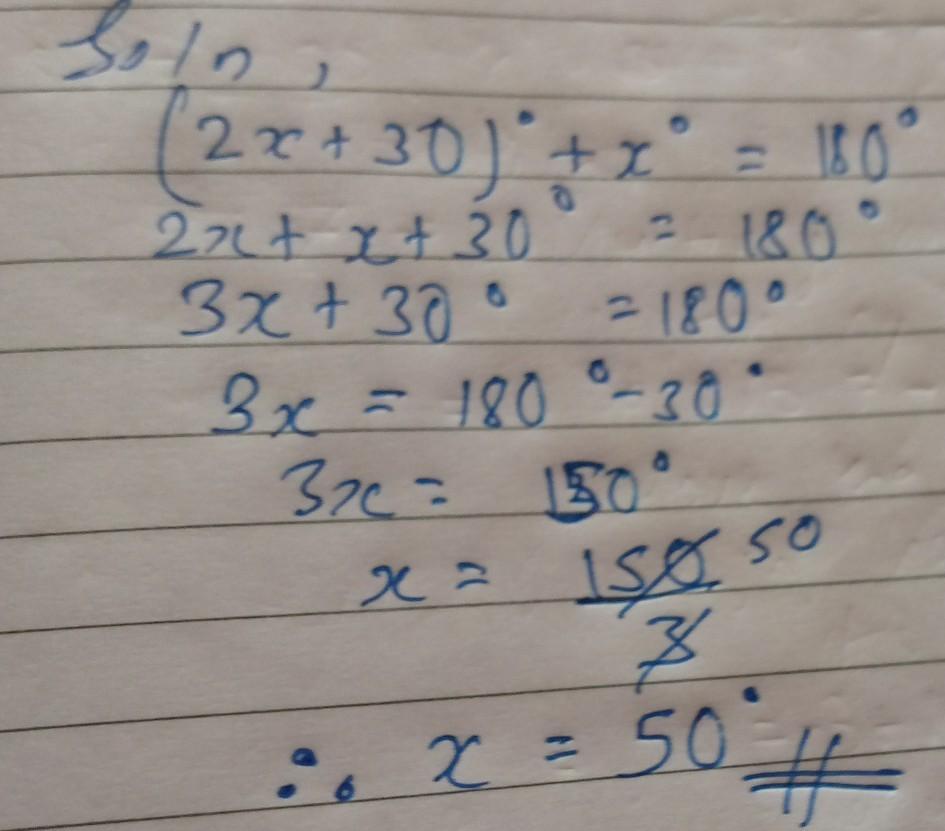 Soln,
(2x + 30)° + x° = 180°
2x + x + 30° = 180°
3x + 30° = 180°
3x = 180° - 30°
3x = 150°
x = 150/3 50
∴ x = 50°